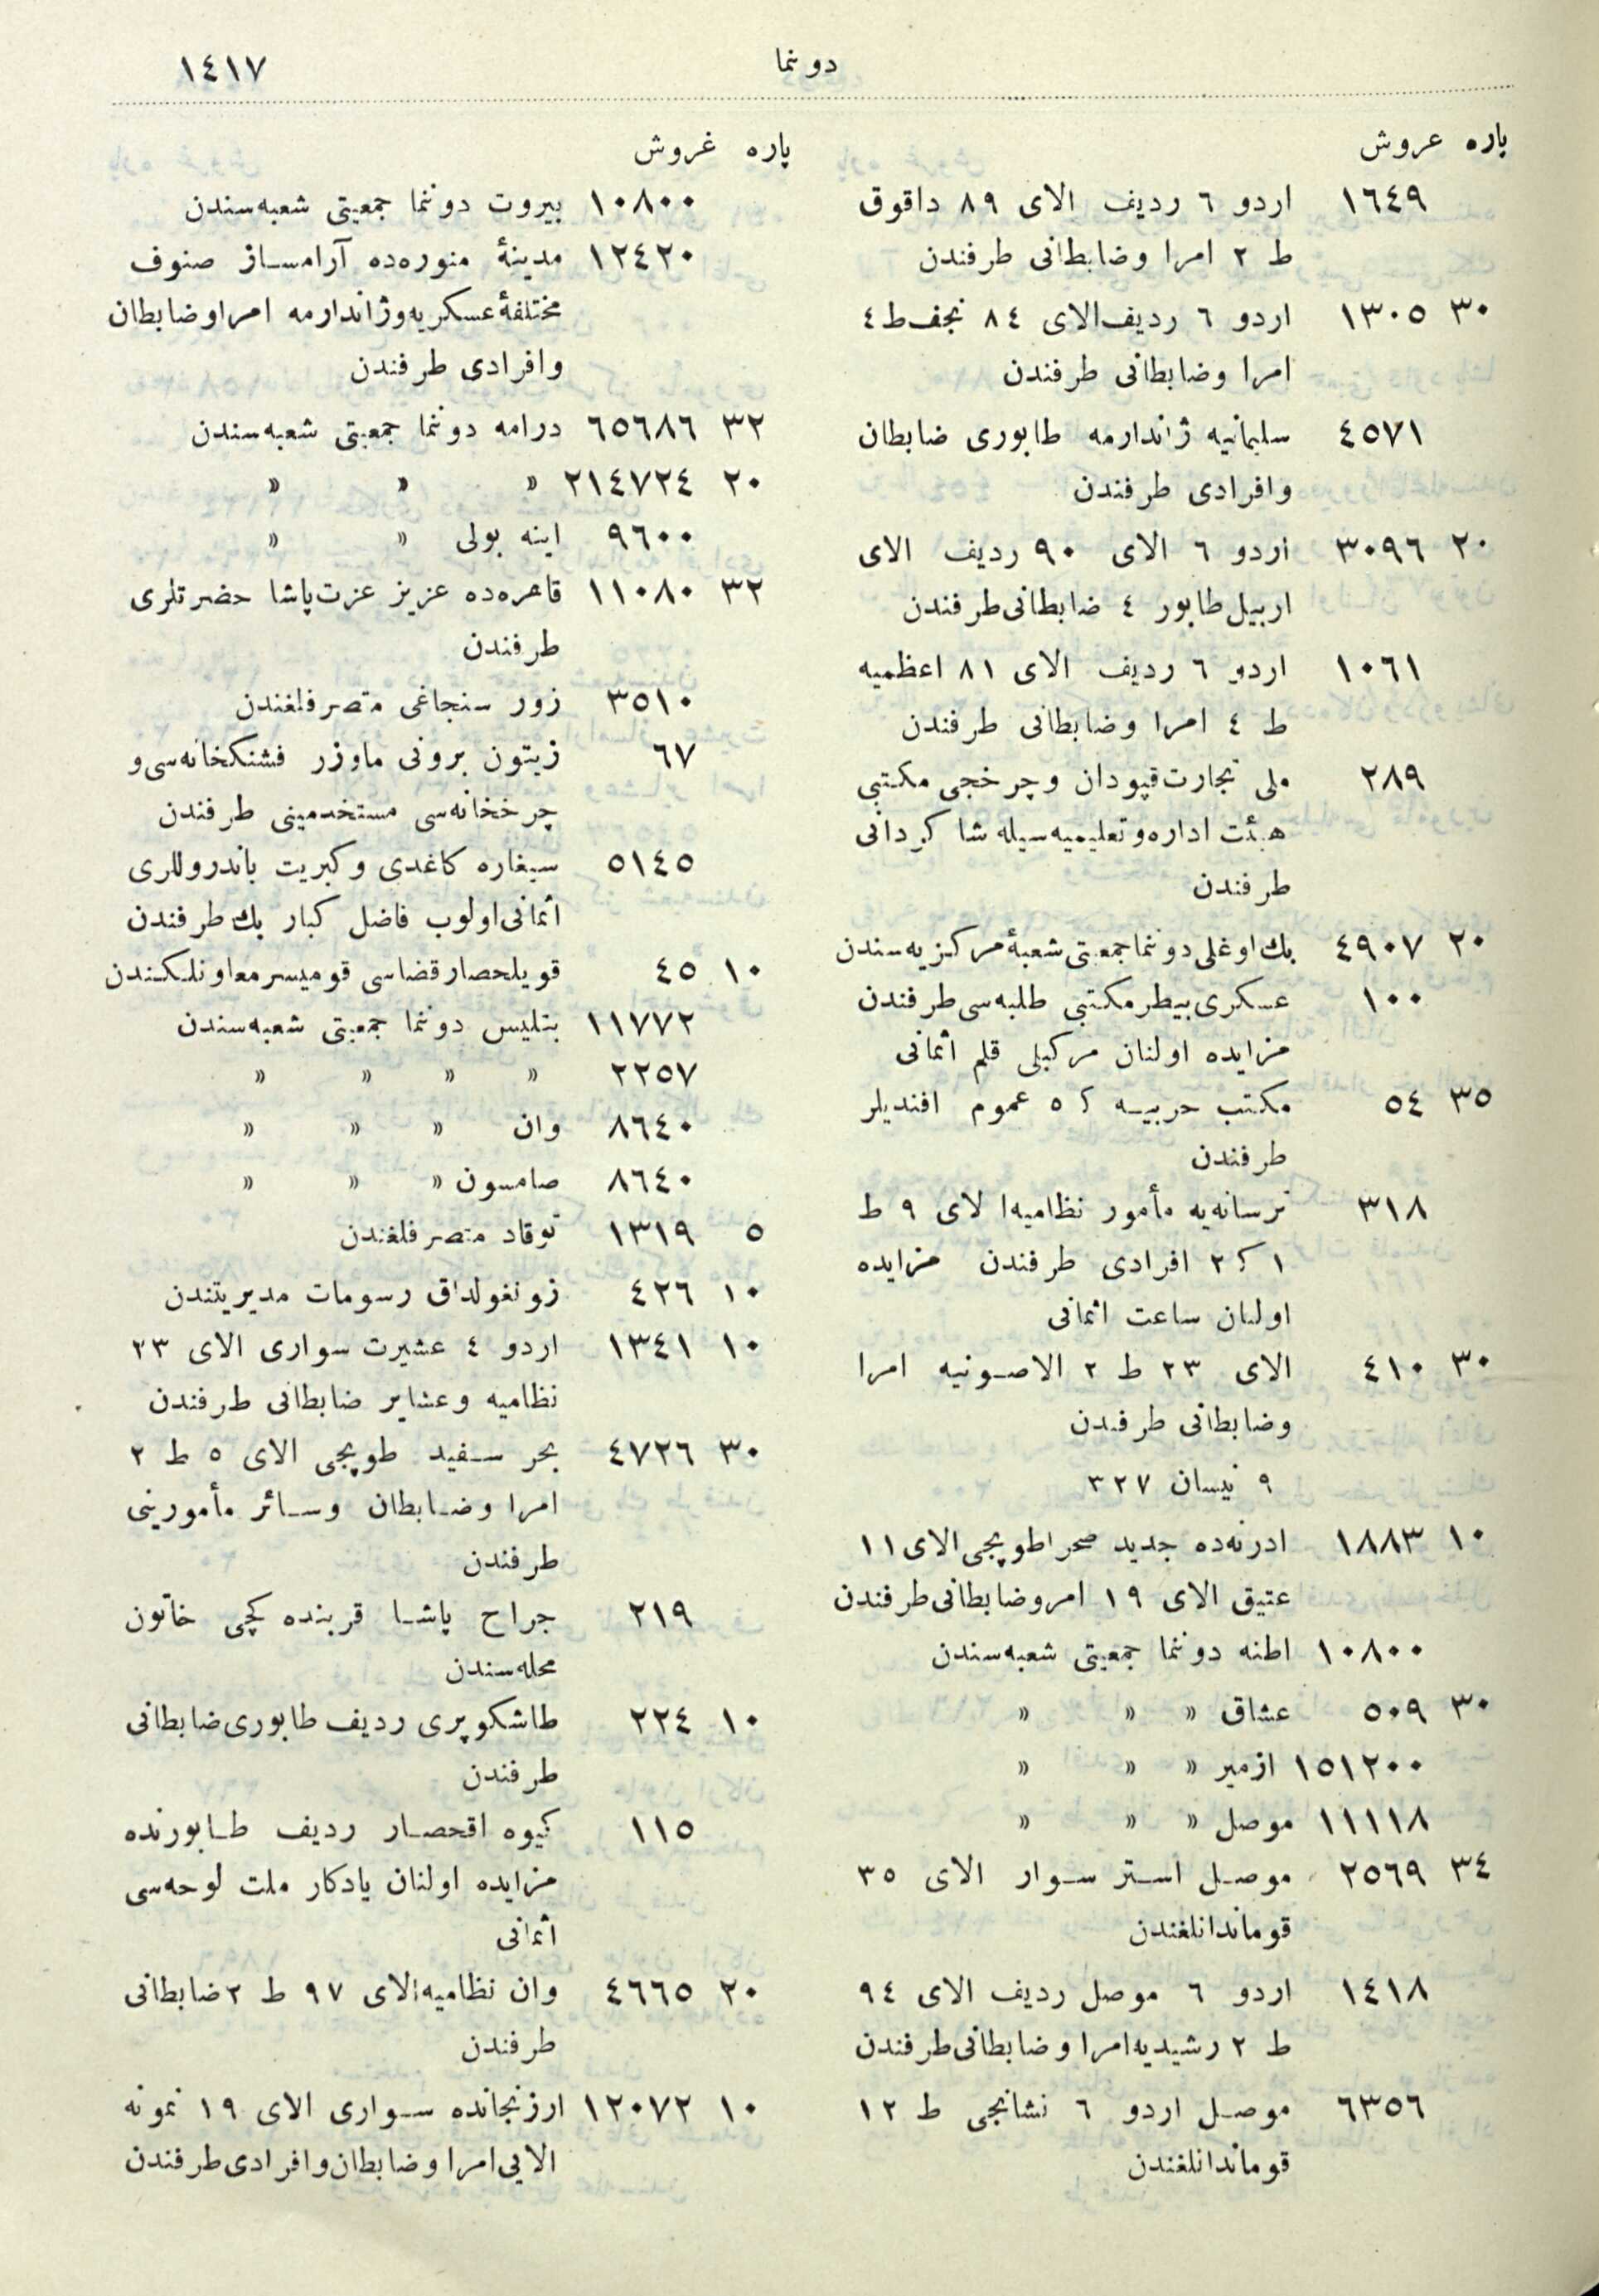 دوننما ١٤١٧
پاره عروش
١٦٤٩ اردو ٦ رديف الاى ٨٩ داقوق
ط ٢ امرا وضابطانى طرفندن
٣٠ ١٣٠٥ اردو ٦ رديف الاى ٨٤ نجف ط ٤
امرا وضابطانى طرفندن
٤٥٧١ سليمانيه ژاندارمه طابورى ضابطان
وافرادى طرفندن
٢٠ ٣٠٩٦ اردو ٦ الاى ٩٠ رديف الاى
اربيل طابور ٤ ضابطانى طرفندن
١٠٦١ اردو ٦ رديف الاى ٨١ اعظميه
ط ٤ امرا وضابطانى طرفندن
٢٨٩ ملى تجارت قپودان وچرخجى مكتبى
هيئت اداره وتعليميه سيله شاكردانى
طرفندن
٢٠ ٤٩٠٧ بك اوغلى دوننما جمعيتى شعبۀ مركزيه سندن
١٠٠ عسكرى بيطر مكتبى طلبه سى طرفندن
مزايده اولنان مركبلى قلم اثمانى
٣٥ ٥٤ مكتب حربيه ك ٥ عموم افنديلر
طرفندن
٣١٨ ترسانه يه مأمور نظاميه الاى ٩ ط
١ ك ٢ افرادى طرفندن مزايده
اولنان ساعت اثمانى
٣٠ ٤١٠ الاى ٢٣ ط ٢ الاصونيه امرا
وضابطانى طرفندن
٩ نيسان ٣٢٧
١٠ ١٨٨٣ ادرنه ده جديد صحرا طوپجى الاى ١١
عتيق الاى ١٩ امرو ضابطانى طرفندن
١٠٨٠٠ اطنه دوننما جمعيتى شعبه سندن
٣٠ ٥٠٩ عشاق « « «
١٥١٢٠٠ ازمير « « «
١١١١٨ موصل « « «
٣٤ ٢٥٦٩ موصل استر سوار الاى ٣٥
قوماندانلغندن
١٤١٨ اردو ٦ موصل رديف الاى ٩٤
ط ٢ رشيديه امرا وضابطانى طرفندن
٦٣٥٦ موصل اردو ٦ نشانجى ط ١٢
قوماندانلغندن
پاره غروش
١٠٨٠٠ بيروت دوننما جمعيتى شعبه سندن
١٢٤٢٠ مدينۀ منوره ده آرامساز صنوف
مختلفۀ عسكريه وژاندارمه امرا وضابطان
وافرادى طرفندن
٣٢ ٦٥٦٨٦ درامه دوننما جمعيتى شعبه سندن
٢٠ ٢١٤٧٢٤ « « «
٩٦٠٠ اينه بولى « «
٣٢ ١١٠٨٠ قاهره ده عزيز عزت پاشا حضرتلرى
طرفندن
٣٥١٠ زور سنجاغى متصرفلغندن
٦٧ زيتون برونى ماوزر فشنكخانه سى و
چرخخانه سى مستخدمينى طرفندن
٥١٤٥ سيغاره كاغدى وكبريت باندروللرى
اثمانى اولوب فاضل كبار بك طرفندن
١٠ ٤٥ قويلحصار قضاسى قوميسر معاونلكندن
١١٧٧٢ بتليس دوننما جمعيتى شعبه سندن
٢٢٥٧ « « « «
٨٦٤٠ وان « « «
٨٦٤٠ صامسون « « «
٥ ١٣١٩ توقاد متصرفلغندن
١٠ ٤٢٦ زونغولداق رسومات مديريتندن
١٠ ١٣٤١ اردو ٤ عشيرت سوارى الاى ٢٣
نظاميه وعشاير ضابطانى طرفندن
٣٠ ٤٧٢٦ بحر سفيد طوپجى الاى ٥ ط ٢
امرا وضابطان وسائر مأمورينى
طرفندن
٢١٩ جراح پاشا قربنده كچى خاتون
محله سندن
١٠ ٢٢٤ طاشكوپرى رديف طابورى ضابطانى
طرفندن
١١٥ كيوه اقحصار رديف طابورنده
مزايده اولنان يادكار ملت لوحه سى
اثمانى
٢٠ ٤٦٦٥ وان نظاميه الاى ٩٧ ط ٢ ضابطانى
طرفندن
١٠ ١٢٠٧٢ ارزنجانده سوارى الاى ١٩ نمونه
الايى امرا وضابطان وافرادى طرفندن